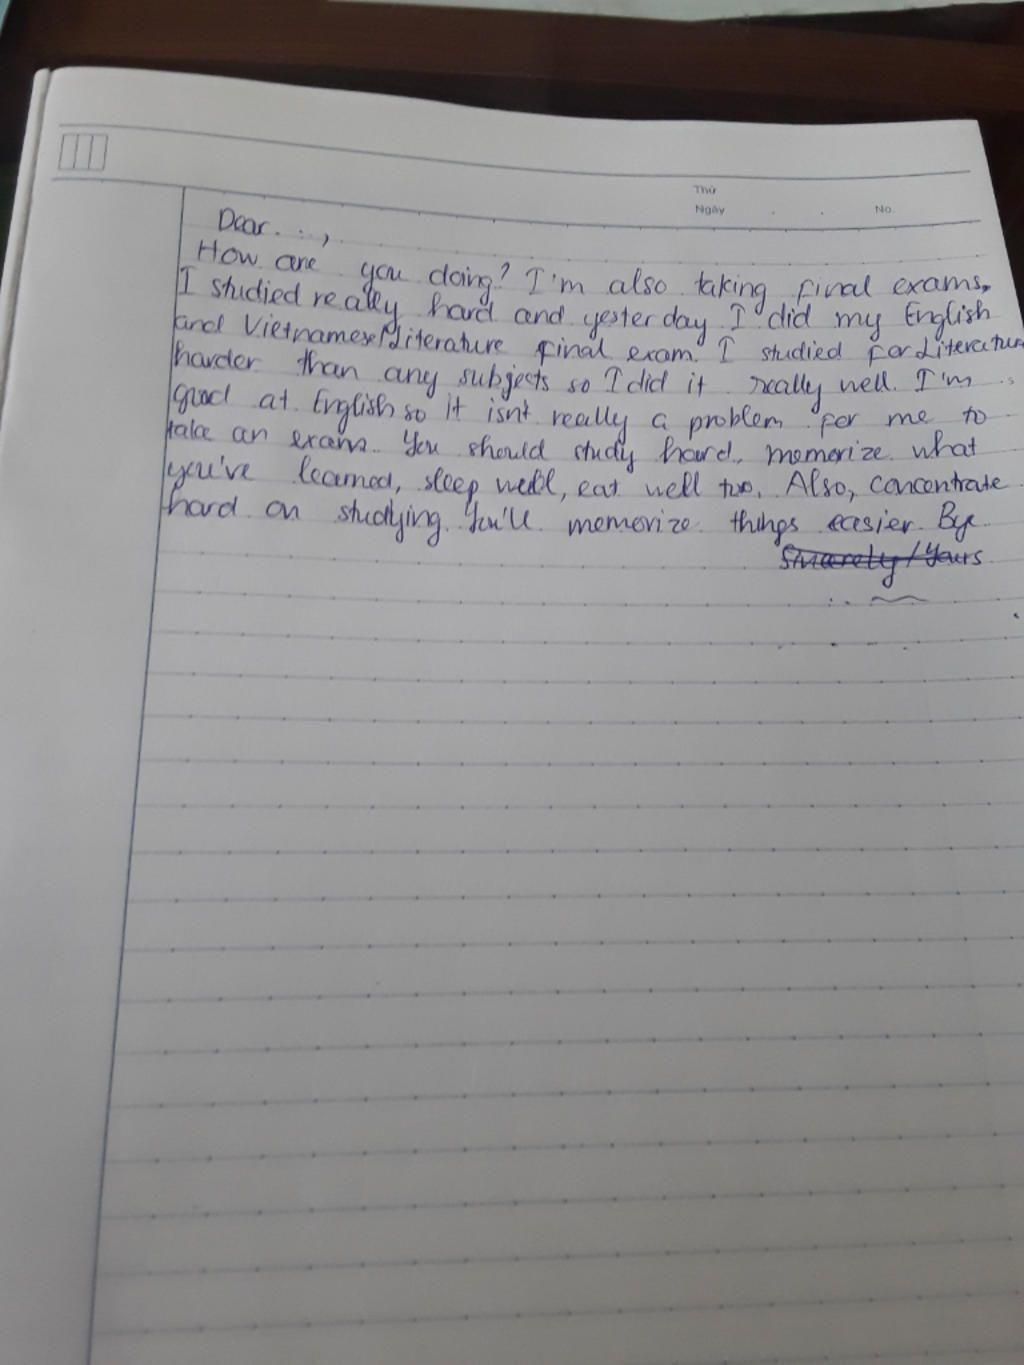 Thứ
Ngày . . No.
Dear...,
How are you doing? I'm also taking final exams,
I studied really hard and yesterday I did my English
and Vietnamese/Literature final exam. I studied for Literature
harder than any subjects so I did it really well. I'm
good at English so it isn't really a problem for me to
take an exam. You should study hard, memorize what
you've learned, sleep well, eat well too. Also, concentrate
hard on studying. You'll memorize things easier. Bye.
Sincerely/Yours